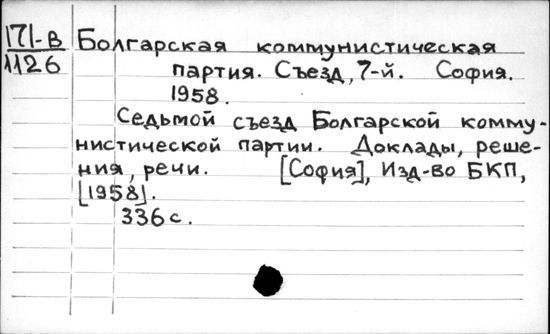 171-В
1126
Болгарская коммунистическая
партия. Съезд, 7-й. София.
1958.
Седьмой съезд Болгарской комму-
нистической партии. Доклады, реше-
ния, речи. [София], Изд-во БКП,
[1958].
336 с.